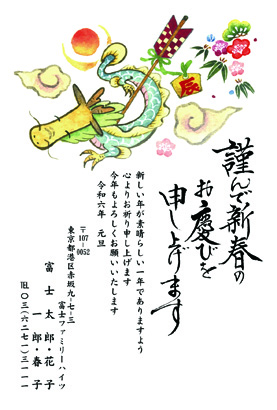 辰
謹んで新春の
お慶びを
申し上げます
新しい年が素晴らしい一年でありますよう
心よりお祈り申し上げます
今年もよろしくお願いいたします
令和六年　元旦
〒107-0052
東京都港区赤坂九-七-三
富士ファミリーハイツ
富士太郎・花子
一郎・春子
℡〇三(六二七一)三一一一